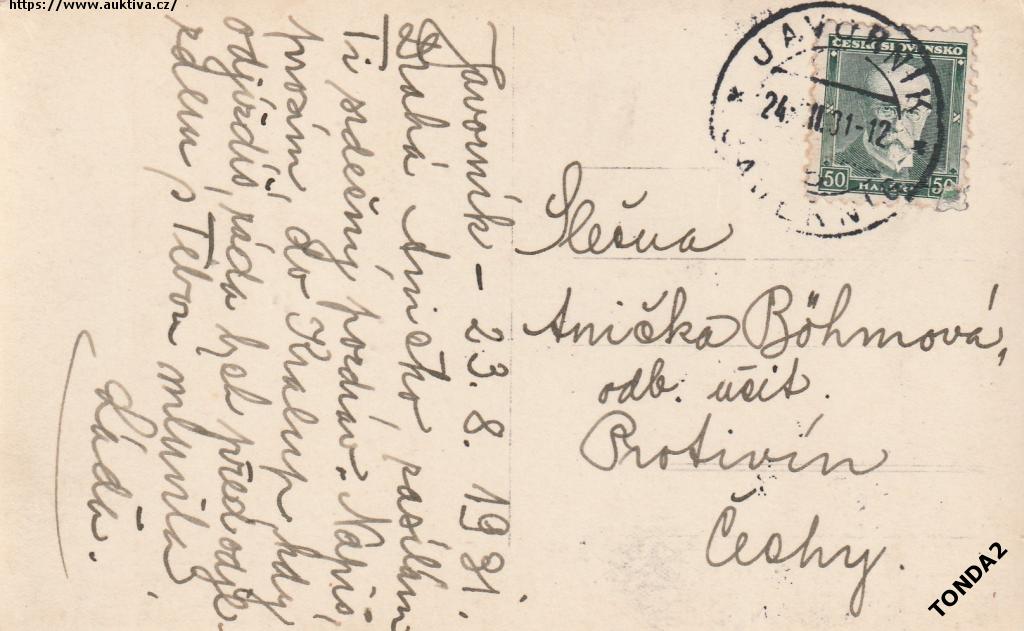 https://www.auktiva.cz/
Javorník – 23. 8. 1931.
Drahá Aničko zasílám
Ti srdečný pozdrav. Napiš
prosím do Kralup kdy
odjíždíš, ráda bych před odje-
zdem s Tebou mluvila
Láďa.
JAVORNÍK
24. VIII 31-12
ČESKOSLOVENSKO
50 50
Slečna
Anička Böhmová,
odb. učit.
Protivín
Čechy.
TONDA2